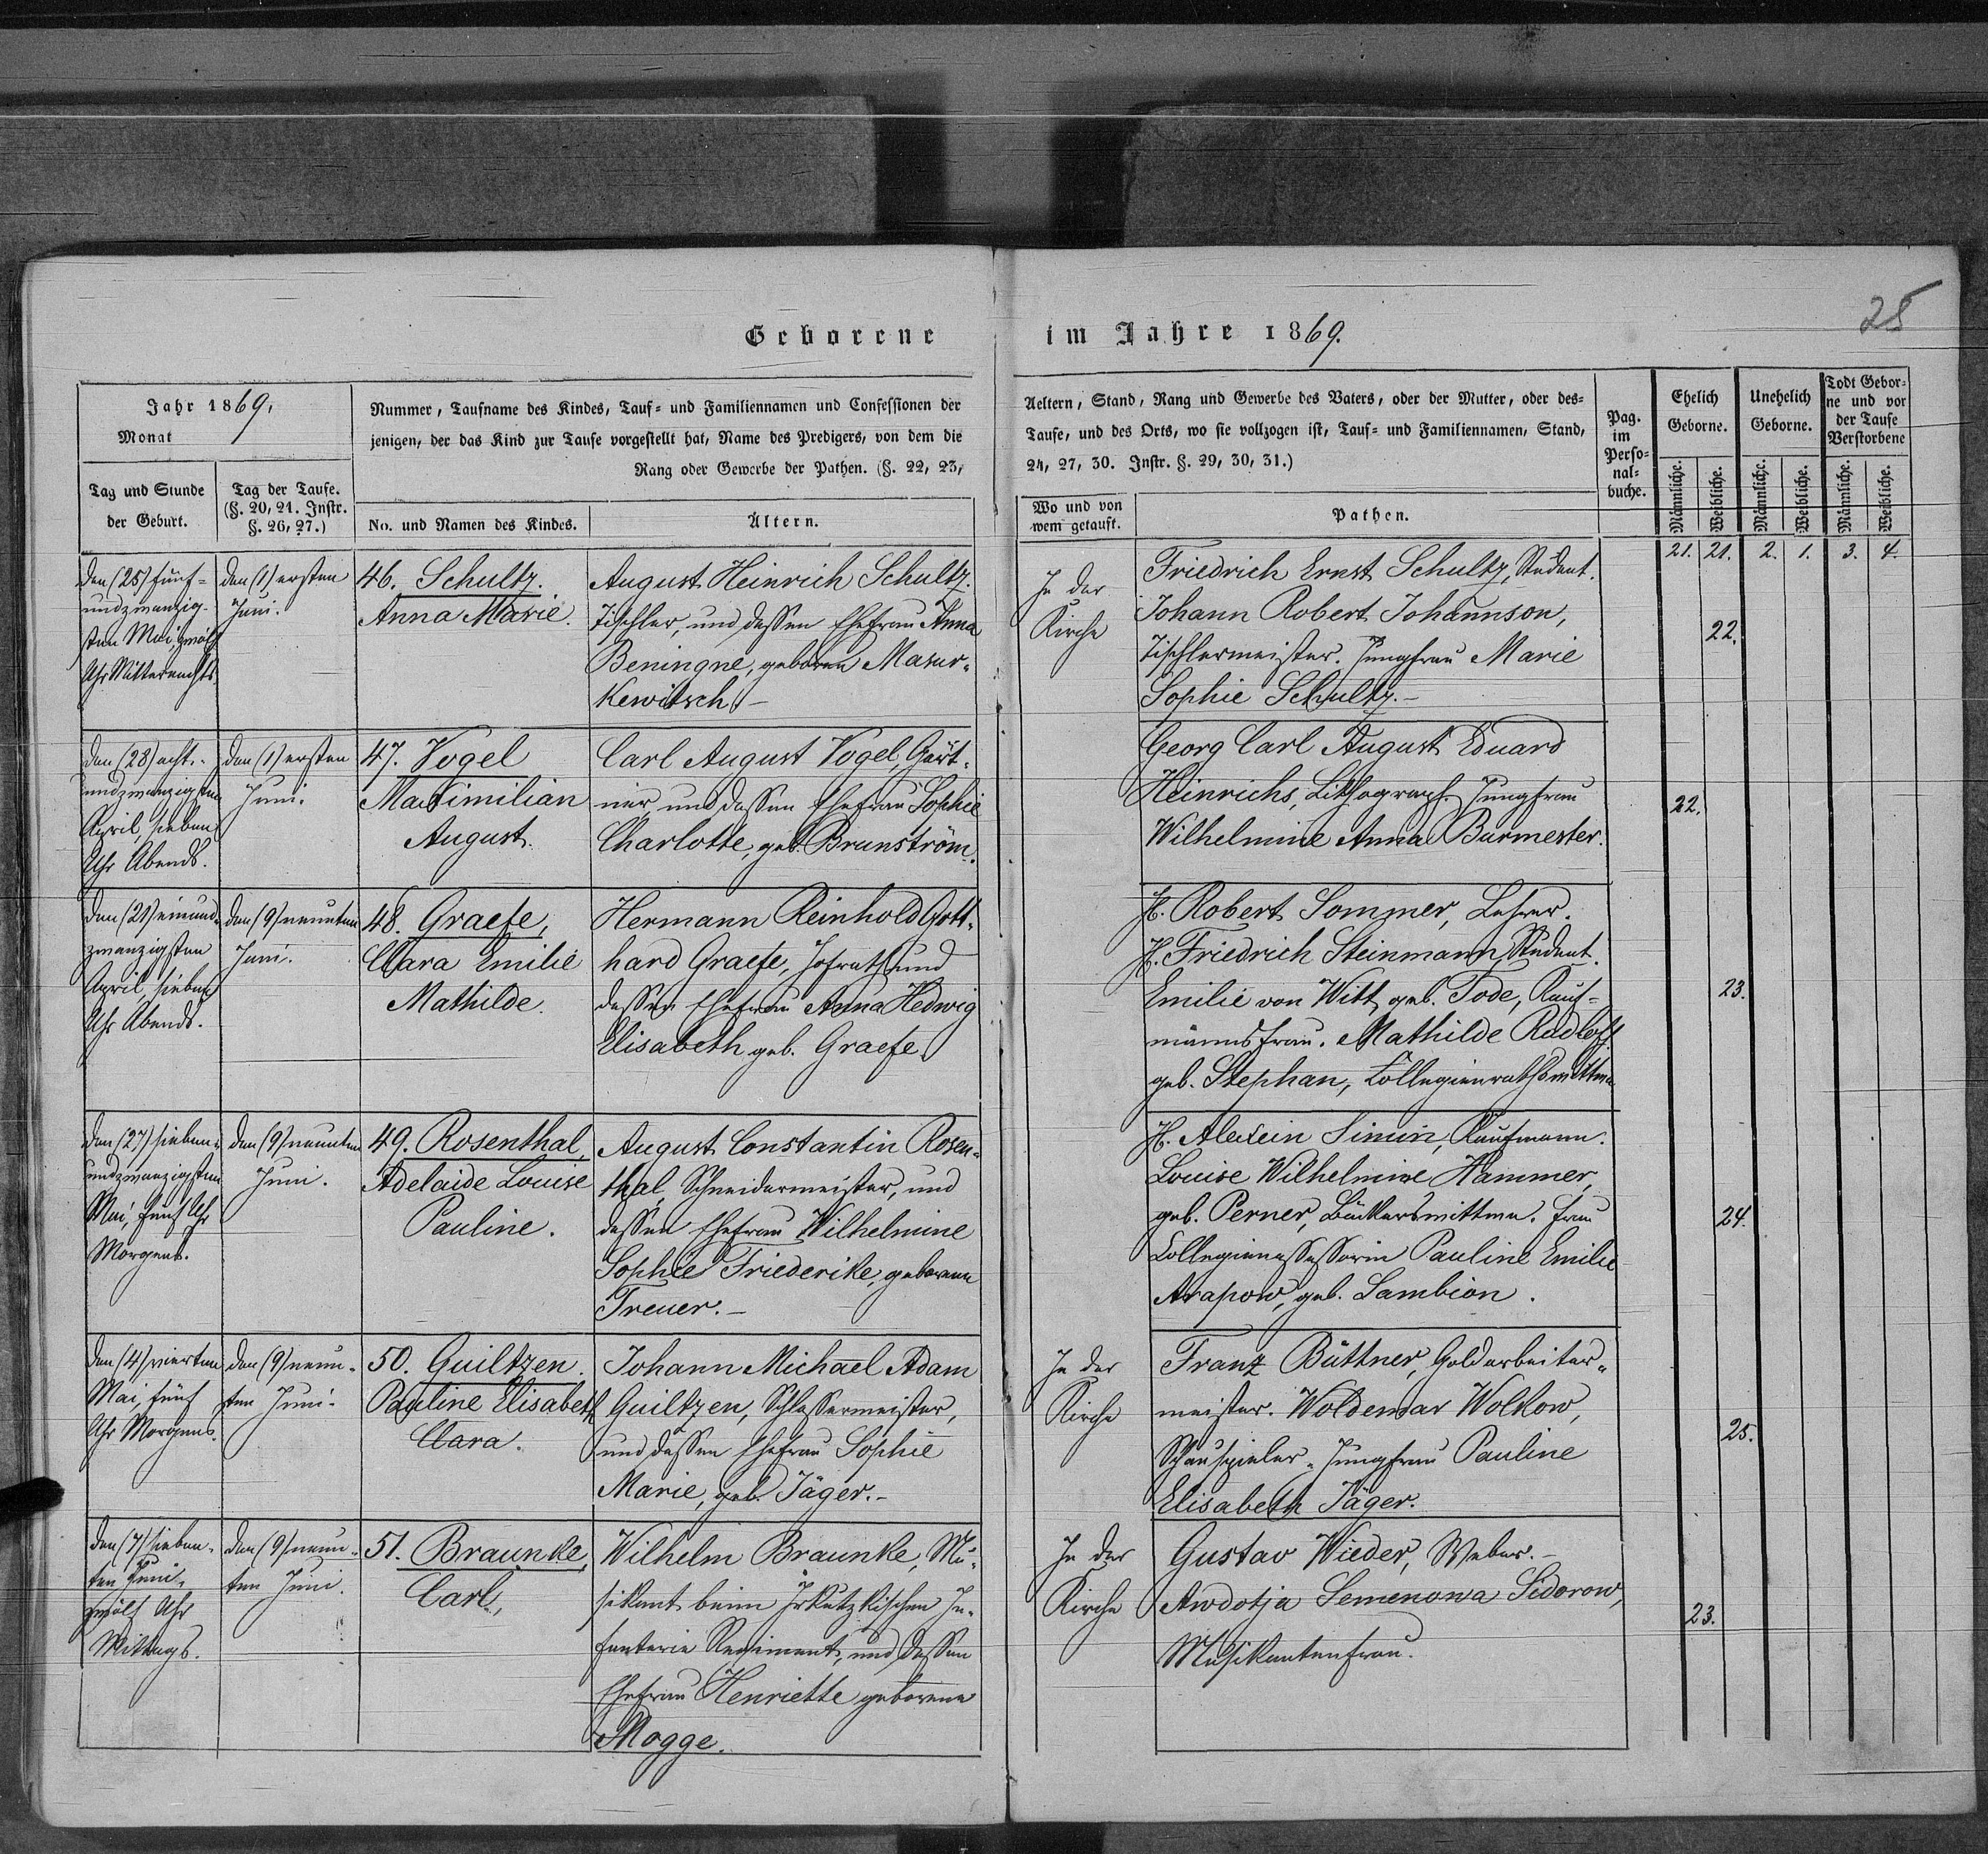 25
Geborene im Jahre 1869.
Jahr 1869,
Monat
Tag und Stunde
der Geburt.
Tag der Taufe.
(§. 20, 21. Instr.
§. 26, 27.)
Nummer, Taufname des Kindes, Tauf- und Familiennamen und Confessionen der
jenigen, der das Kind zur Taufe vorgestellt hat, Name des Predigers, von dem die
Rang oder Gewerbe der Pathen. (§. 22, 23,
No. und Namen des Kindes.
Ältern.
Aeltern, Stand, Rang und Gewerbe des Vaters, oder der Mutter, oder des-
Taufe, und des Orts, wo sie vollzogen ist, Tauf- und Familiennamen, Stand,
24, 27, 30. Instr. §. 29, 30, 31.)
Wo und von
wem getauft.
Pathen.
Pag.
im
Perso-
nal-
buche.
Ehelich
Geborne.
Unehelich
Geborne.
Todt Gebor-
ne und vor
der Taufe
Verstorbene
Männliche.
Weibliche.
Männliche.
Weibliche.
Männliche.
Weibliche.
21. 21. 2. 1. 3. 4.
den (25) fünf-
undzwanzig-
sten Mai, zwölf
Uhr Mitternachts.
den (1) ersten
Juni.
46. Schultz.
Anna Marie.
August Heinrich Schultz.
Tischler, und dessen Ehefrau Anna
Beningne, geboren Masur-
kewitsch.–
In der
Kirche
Friedrich Ernst Schultz, Student.
Johann Robert Johannson,
Tischlermeister. Jungfrau Marie
Sophie Schultz.–
22.
den (28) acht-
undzwanzigsten
April, sieben
Uhr Abends.
den (1) ersten
Juni.
47. Vogel
Maximilian
August.
Carl August Vogel, Gärt-
ner, und dessen Ehefrau Sophie
Charlotte, geb. Brunström.
Georg Carl August Eduard
Heinrichs, Lithograph. Jungfrau
Wilhelmine Anna Burmester.
22.
den (21) einund-
zwanzigsten
April, sieben
Uhr Abends.
den (9) neunten
Juni.
48. Graefe,
Clara Emilie
Mathilde.
Hermann Reinhold Gott-
hard Graefe, Hofrath und
dessen Ehefrau Anna Hedwig
Elisabeth geb. Graefe
H. Robert Sommer, Lehrer.
H. Friedrich Steinmann, Student.
Emilie von Witt geb. Tode, Kauf-
mannsfrau. Mathilde Radloff
geb. Stephan, Collegienrathswittwe
23.
den (27) sieben-
undzwanzigsten
Mai, fünf Uhr
Morgens.
den (9) neunten
Juni.
49. Rosenthal,
Adelaide Louise
Pauline.
August Constantin Rosen-
thal, Schneidermeister, und
dessen Ehefrau Wilhelmine
Sophie Friederike, geborene
Treuer.–
H. Alexein Simin, Kaufmann.
Louise Wilhelmine Hammer,
geb. Perner, Bäckerswittwe. Frau
Collegienassessorin Pauline Emilie
Arapow, geb. Lambion.
24.
den (4) vierten
Mai, fünf
Uhr Morgens.
den (9) neun-
ten Juni.
50. Guiltzen.
Pauline Elisabeth
Clara.
Johann Michael Adam
Guiltzen, Schlossermeister,
und dessen Ehefrau Sophie
Marie, geb. Jäger.–
In der
Kirche
Franz Büttner, Goldarbeiter-
meister. Woldemar Wolkow,
Schauspieler. Jungfrau Pauline
Elisabeth Jäger.
25.
den (7) sieben-
ten Juni,
zwölf Uhr
Mittags.
den (9) neun-
ten Juni.
51. Braunke,
Carl,
Wilhelm Braunke, Mu-
sikant beim Irkutzkischen In-
fanterie Regiment, und dessen
Ehefrau Henriette geborene
Mogge.
In der
Kirche
Gustav Wieder, Weber.–
Awdotja Semenowa Sidorow,
Musikantenfrau.
23.